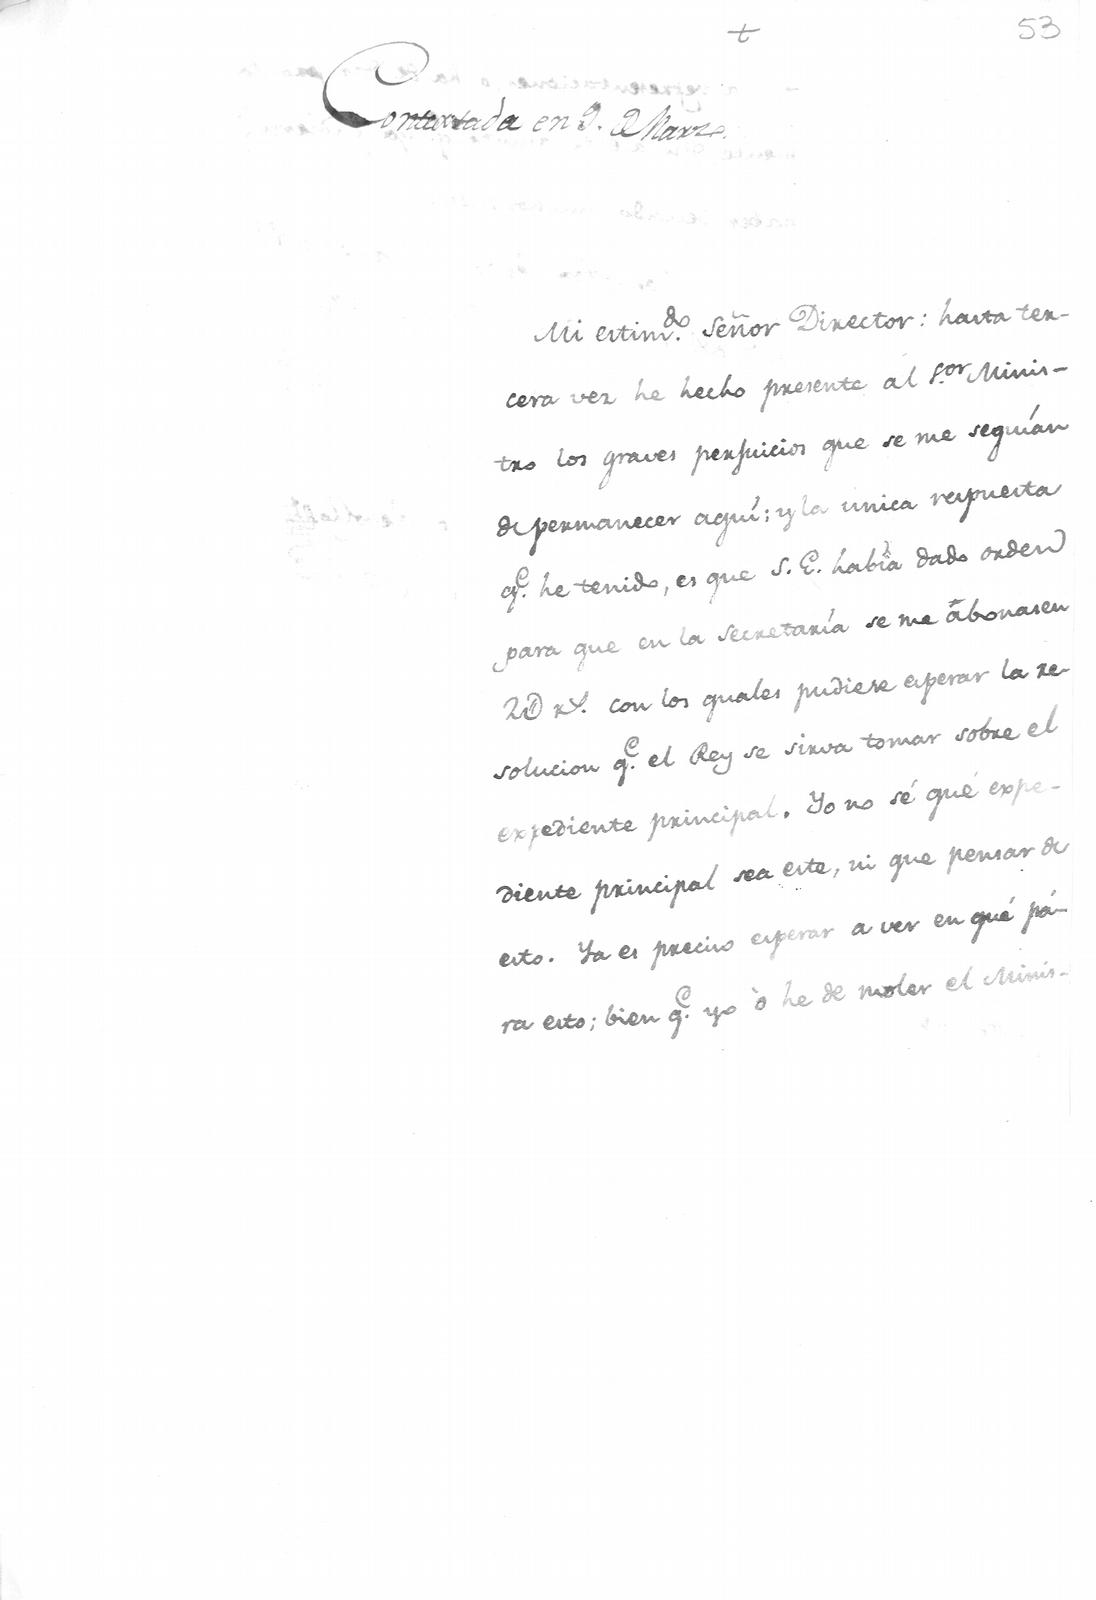 53
Contextada en 9. de Marzo.
Mi estim.do Señor Director: hasta ter-
cera vez he hecho presente al S.or Minis-
tro los graves perjuicios que se me seguían
de permanecer aquí; y la unica respuesta
q.e he tenido, es que S. E. había dado orden
para que en la secretaría se me abonasen
2D rs. con los quales pudiese esperar la re-
solucion q.e el Rey se sirva tomar sobre el
expediente principal. Yo no sé qué expe-
diente principal sea este, ni que pensar de
esto. Ya es preciso esperar a ver en qué pá-
ra esto; bien q.e yo ò he de moler el Minis-